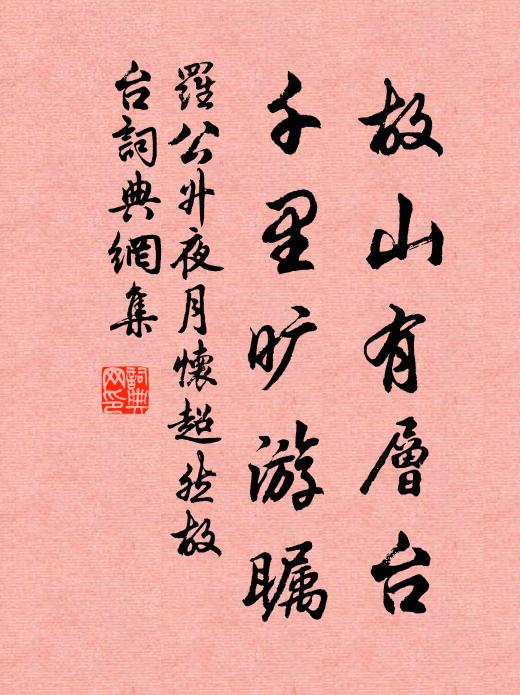 故山有層台
千里旷游瞩
羅公升夜月懷超然故
台詞典網集
詞典网印